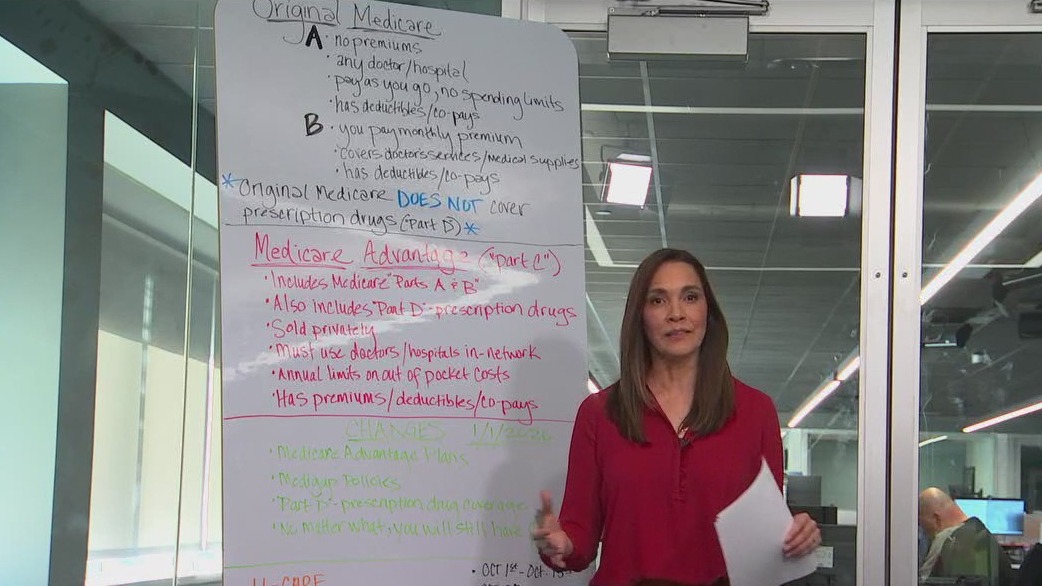 Original Medicare
A • no premiums
• any doctor/hospital
• pay as you go, no spending limits
• has deductibles/co-pays
B • you pay monthly premium
• covers doctor's services/medical supplies
• has deductibles/co-pays
*Original Medicare DOES NOT cover
prescription drugs (Part D)*
Medicare Advantage ("Part C")
• Includes Medicare "Parts A & B"
• Also includes "Part D"- prescription drugs
• Sold privately
• Must use doctors/hospitals in-network
• Annual limits on out of pocket costs
• Has premiums/deductibles/co-pays
CHANGES 1/1/2026
• Medicare Advantage Plans
• Medigap Policies
• "Part D"- prescription drug coverage
• No matter what, you will still have
• OCT 1st - Oct.